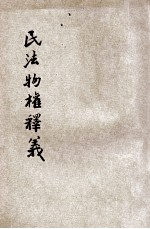 民法物權釋義